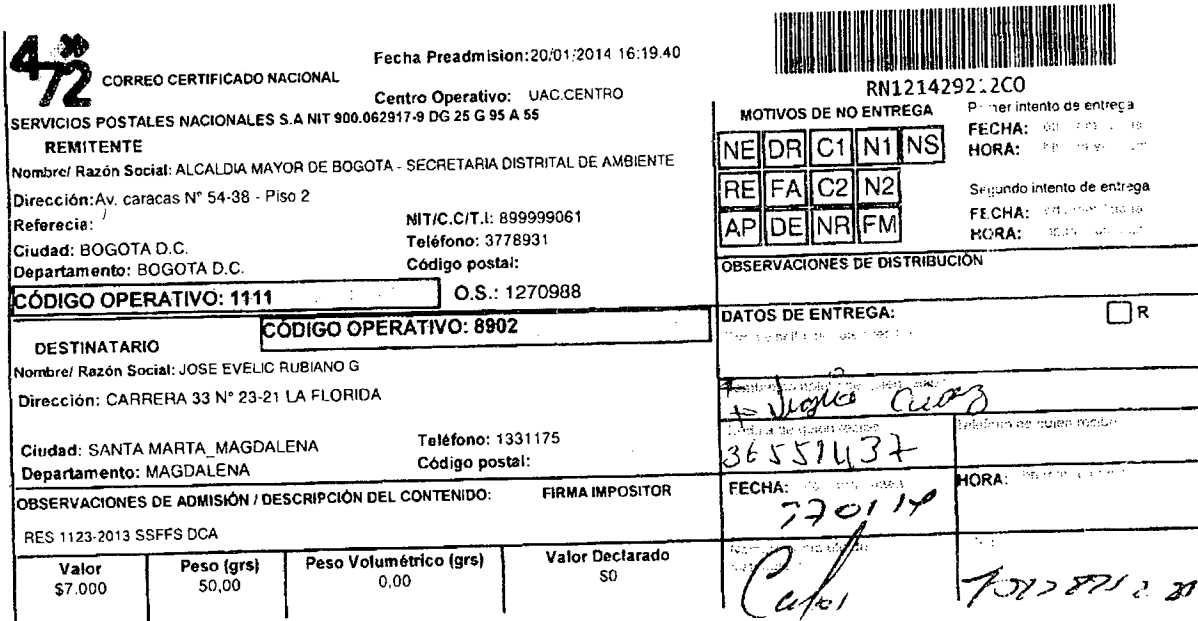 472
CORREO CERTIFICADO NACIONAL
Fecha Preadmision:20/01/2014 16:19.40
Centro Operativo: UAC.CENTRO
SERVICIOS POSTALES NACIONALES S.A NIT 900.062917-9 DG 25 G 95 A 55
REMITENTE
Nombre/ Razón Social: ALCALDIA MAYOR DE BOGOTA - SECRETARIA DISTRITAL DE AMBIENTE
Dirección:Av. caracas N° 54-38 - Piso 2
Referecia:
NIT/C.C/T.I: 899999061
Ciudad: BOGOTA D.C.
Teléfono: 3778931
Departamento: BOGOTA D.C.
Código postal:
CÓDIGO OPERATIVO: 1111
O.S.: 1270988
CÓDIGO OPERATIVO: 8902
DESTINATARIO
Nombre/ Razón Social: JOSE EVELIC RUBIANO G
Dirección: CARRERA 33 N° 23-21 LA FLORIDA
Ciudad: SANTA MARTA_MAGDALENA
Teléfono: 1331175
Departamento: MAGDALENA
Código postal:
OBSERVACIONES DE ADMISIÓN / DESCRIPCIÓN DEL CONTENIDO:
FIRMA IMPOSITOR
RES 1123-2013 SSFFS DCA
Valor
$7.000
Peso (grs)
50,00
Peso Volumétrico (grs)
0,00
Valor Declarado
$0
MOTIVOS DE NO ENTREGA
NE DR C1 N1 NS
RE FA C2 N2
AP DE NR FM
Primer intento de entrega
FECHA:
HORA:
Segundo intento de entrega
FECHA:
HORA:
OBSERVACIONES DE DISTRIBUCIÓN
DATOS DE ENTREGA:
R
36551437
FECHA:
HORA: